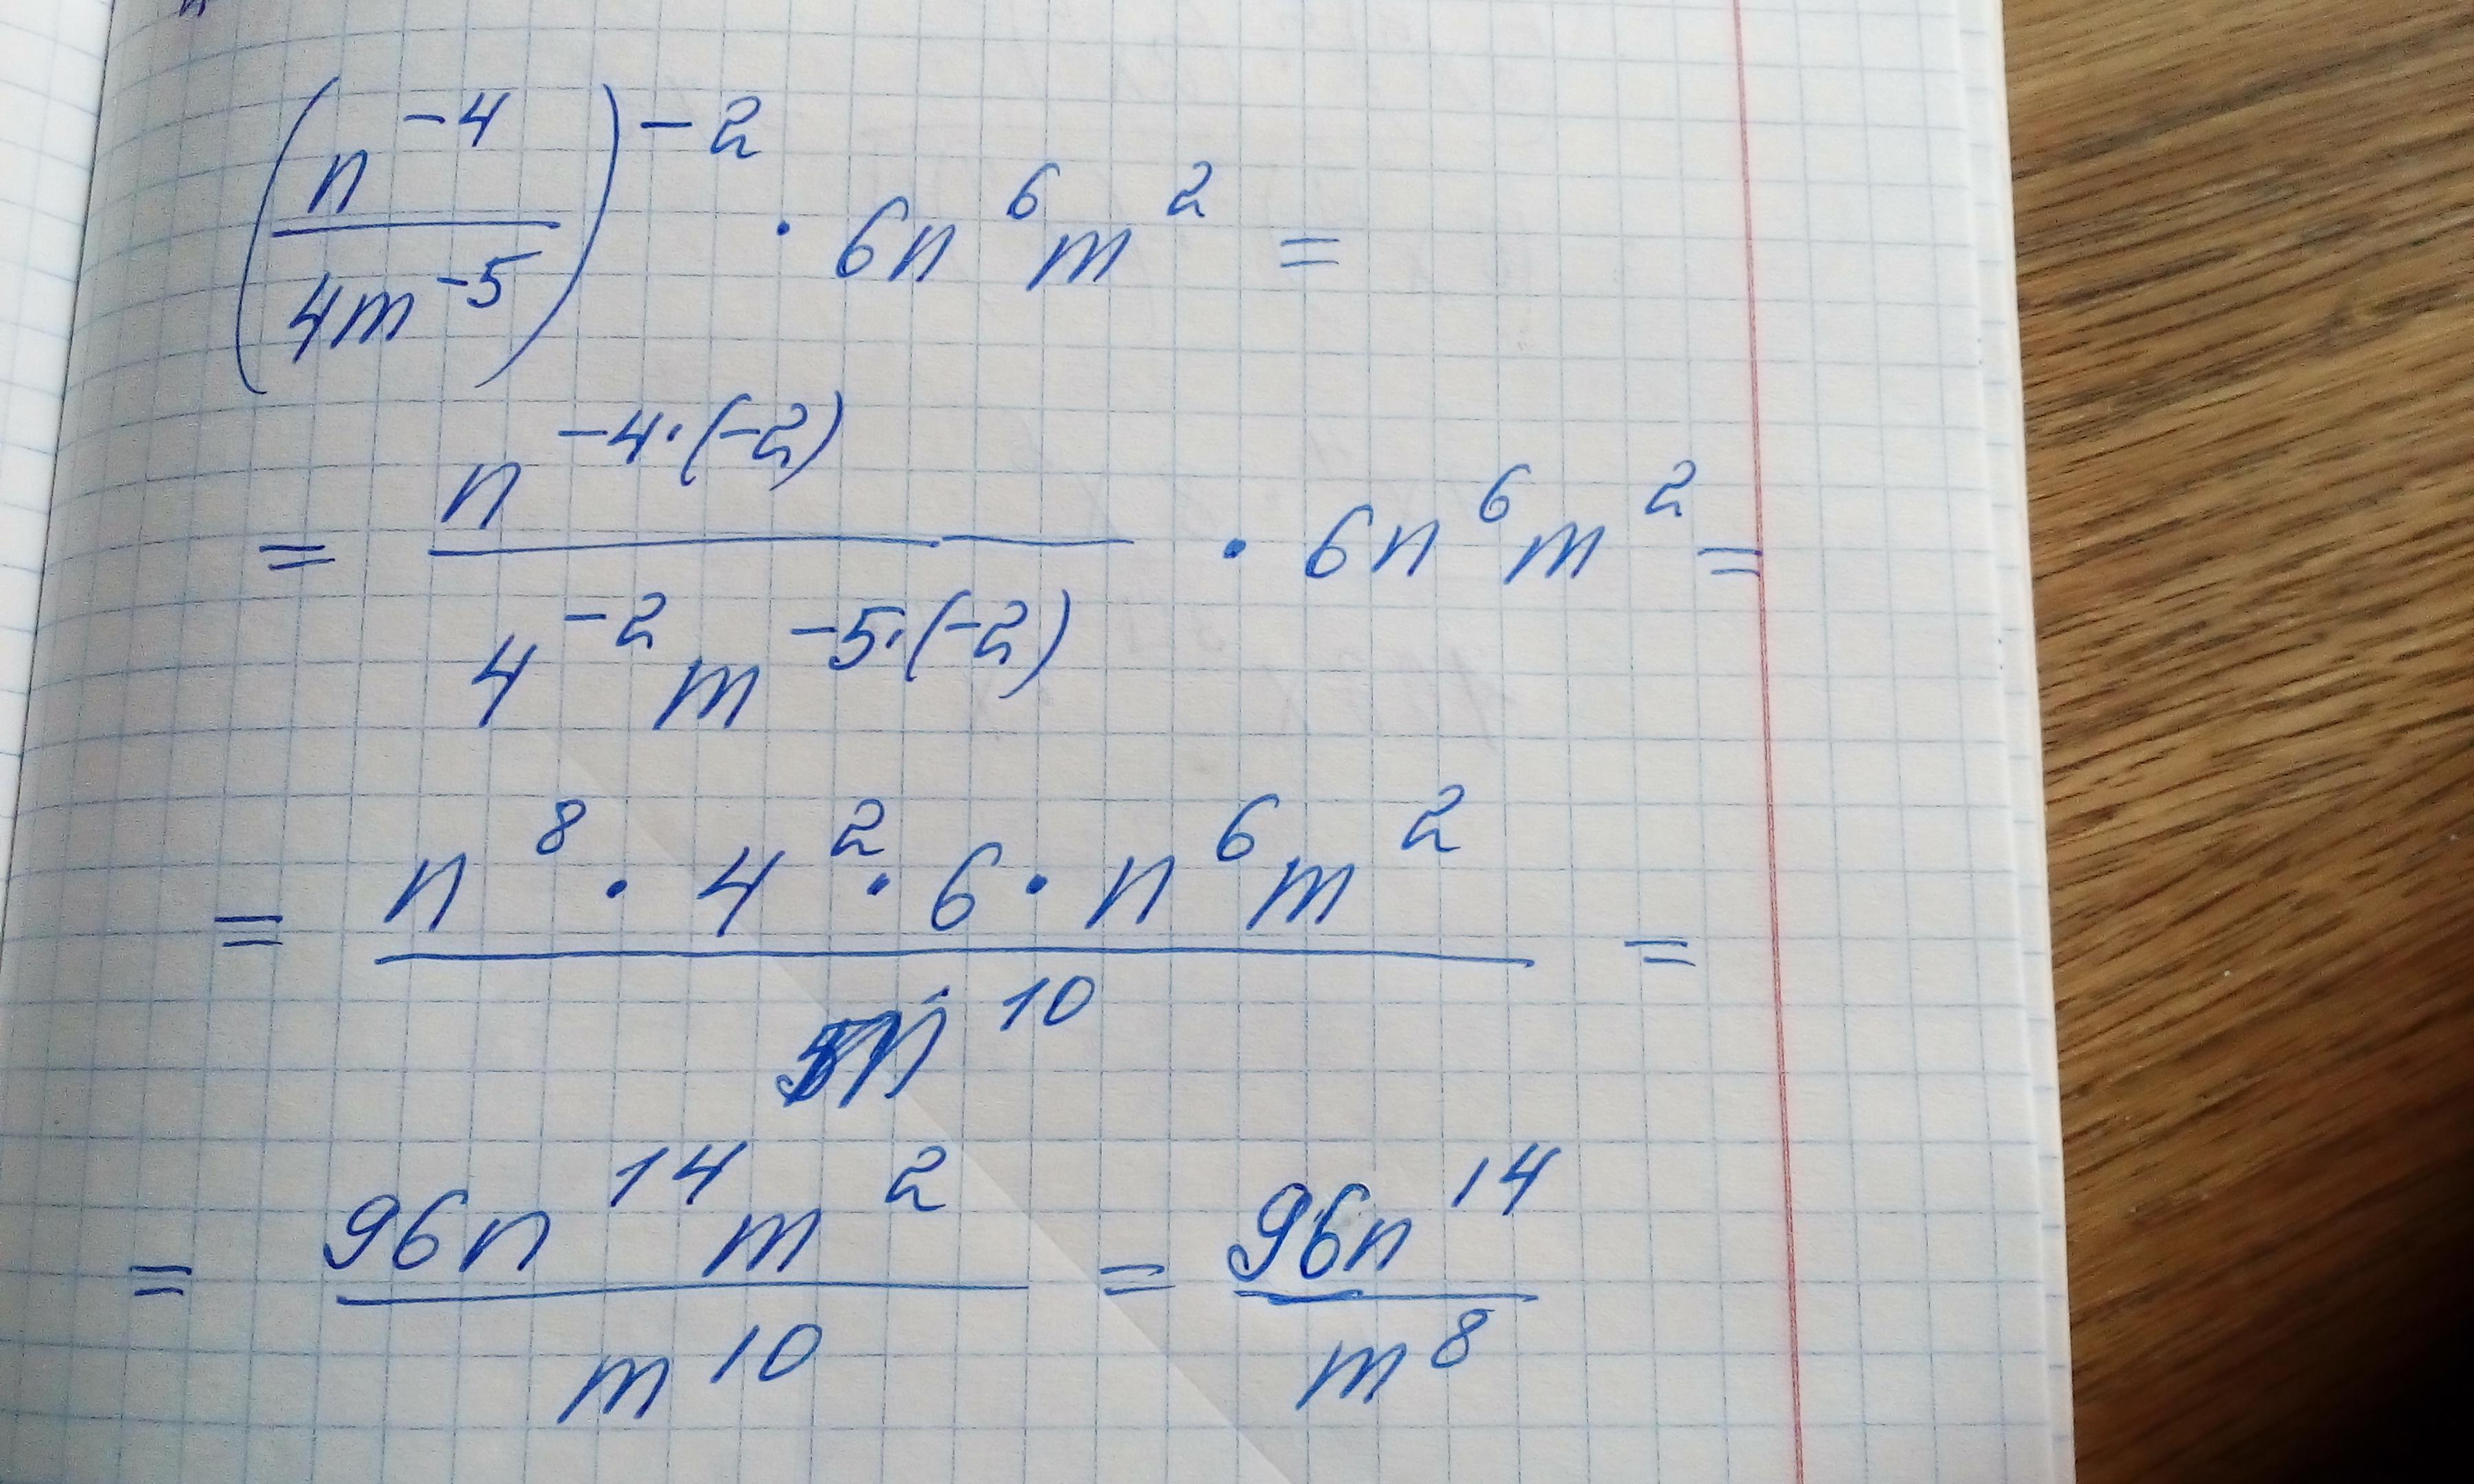 (n⁻⁴/4m⁻⁵)⁻² · 6n⁶m² =
= n⁻⁴·⁽⁻²⁾/4⁻²m⁻⁵·⁽⁻²⁾ · 6n⁶m² =
= n⁸ · 4² · 6 · n⁶m²/m¹⁰ =
= 96n¹⁴m²/m¹⁰ = 96n¹⁴/m⁸